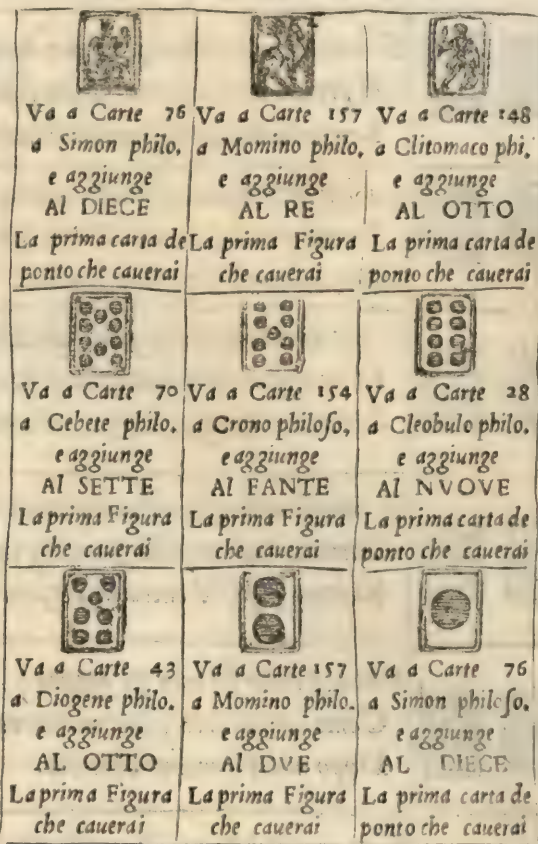 Va a Carte 76
a Simon philo.
e aggiunge
Al DIECE
La prima carta de
ponto che cauerai
Va a Carte 157
a Momino philo,
e aggiunge
AL RE
La prima Figura
che cauerai
Va a Carte 148
a Clitomaco phi.
e aggiunge
AL OTTO
La prima carta de
ponto che cauerai
Va a Carte 70
a Cebete philo.
e aggiunge
Al SETTE
La prima Figura
che cauerai
Va a Carte 154
a Crono philoſo,
e aggiunge
Al FANTE
La prima Figura
che cauerai
Va a Carte 28
a Cleobulo philo.
e aggiunge
Al NVOVE
La prima carta de
ponto che cauerai
Va a Carte 43
a Diogene philo.
e aggiunge
AL OTTO
La prima Figura
che cauerai
Va a Carte 157
a Momino philo.
e aggiunge
Al DVE
La prima Figura
che cauerai
Va a Carte 76
a Simon philoſo.
e aggiunge
AL DIECE
La prima carta de
ponto che cauerai